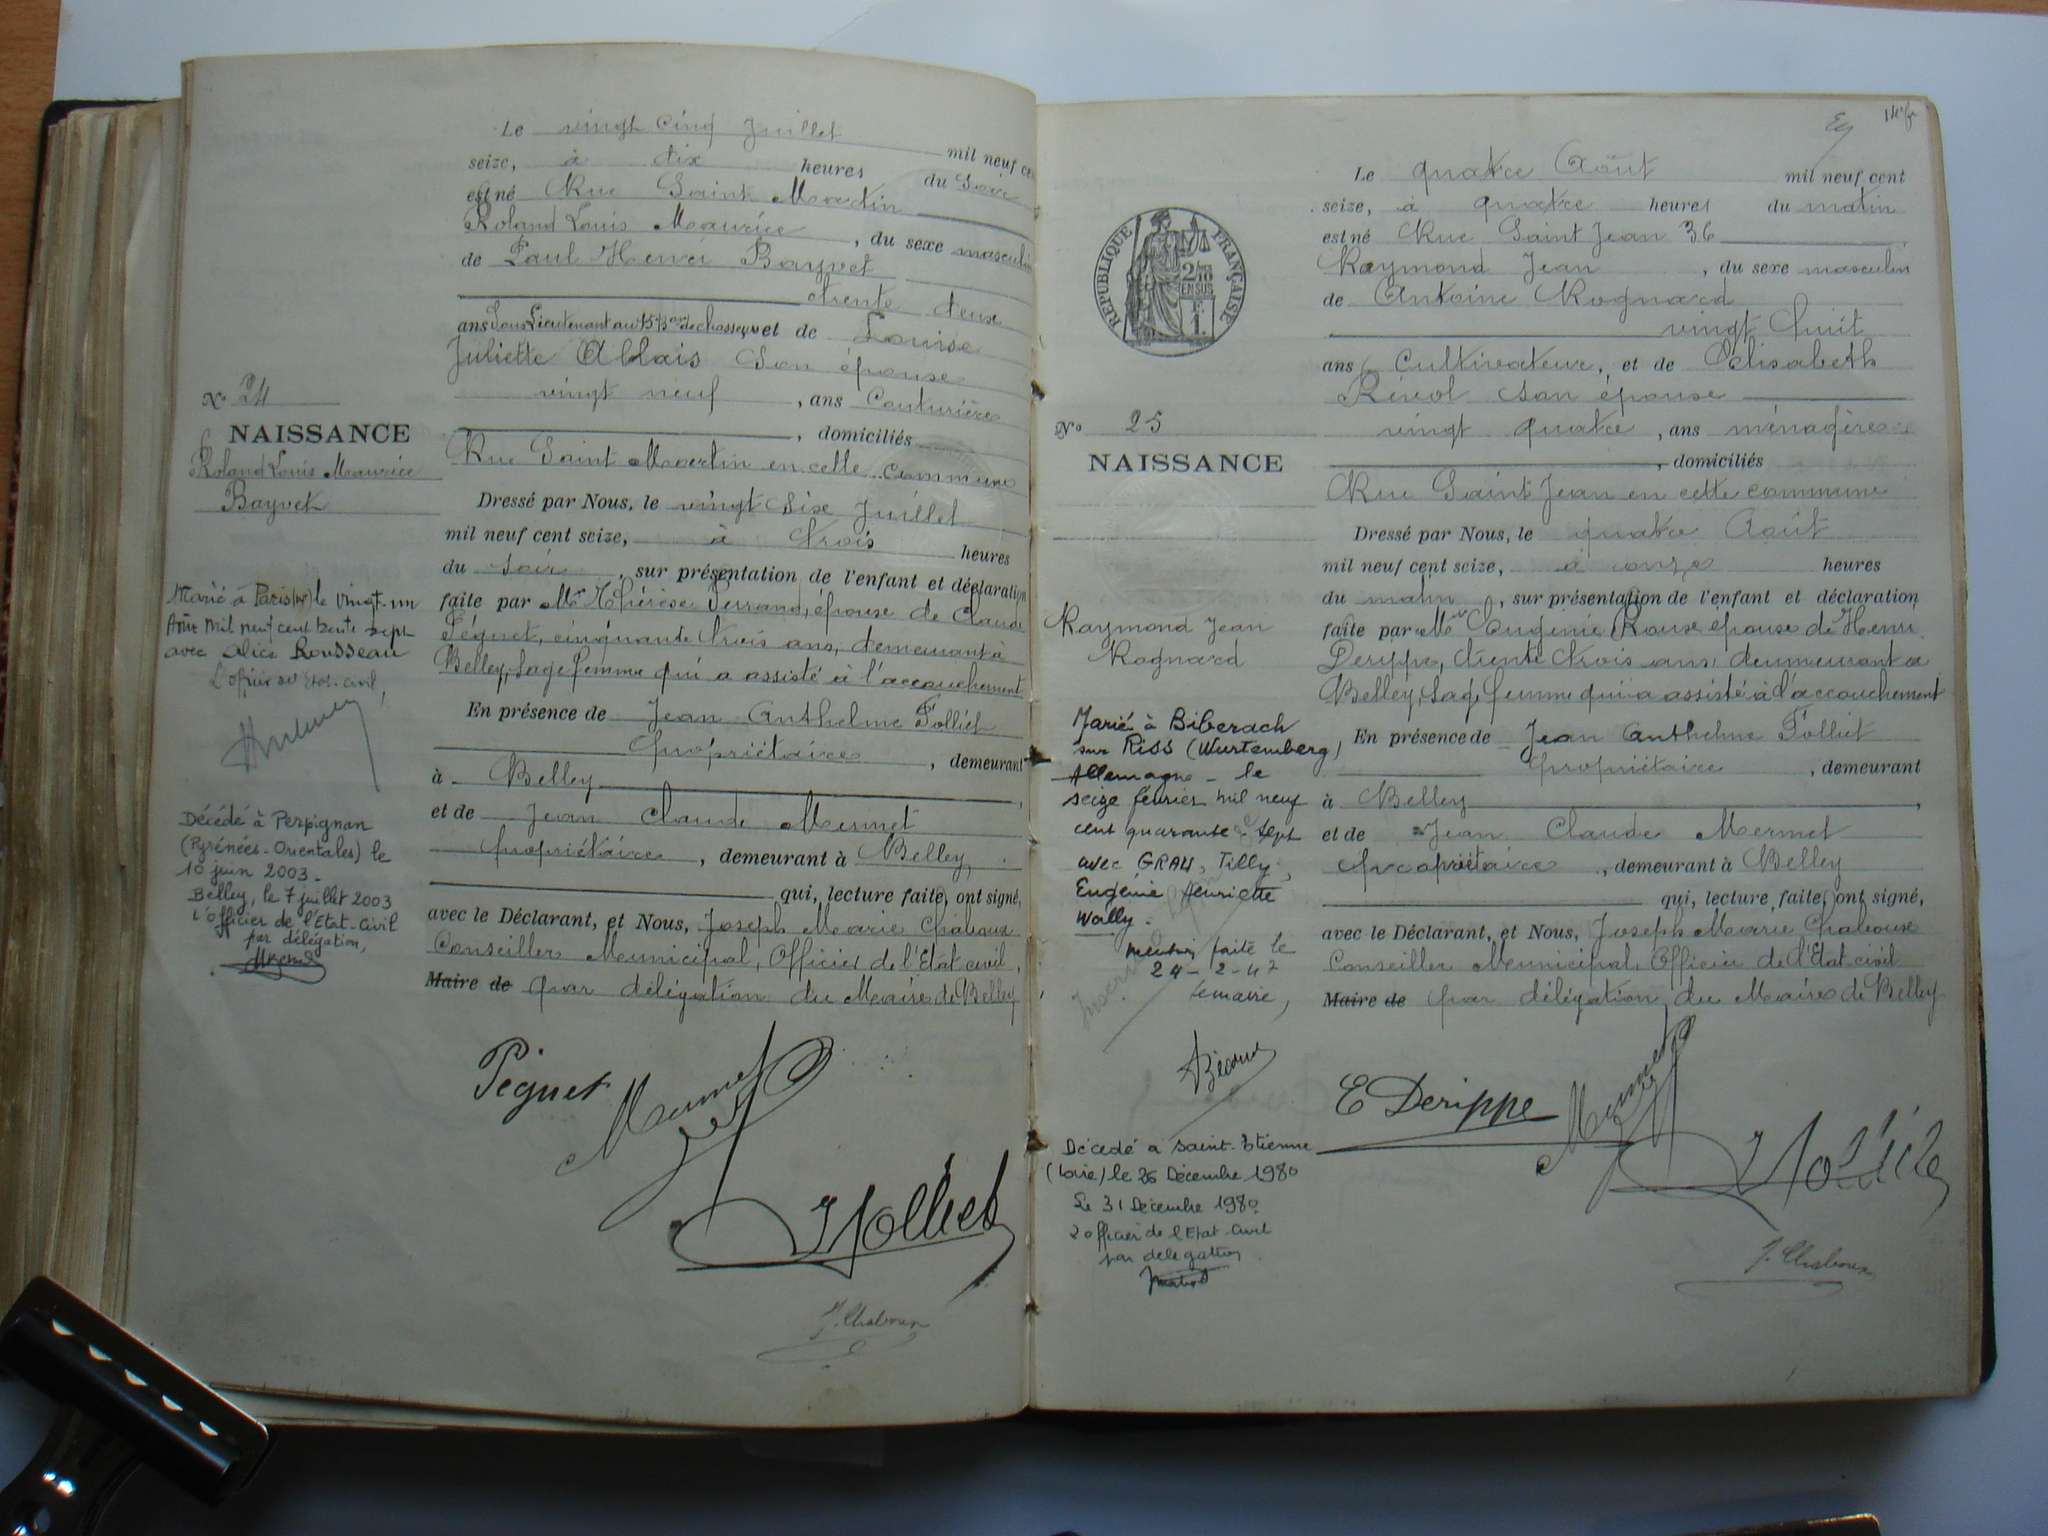 Le vingt cinq Juillet mil neuf cen
seize, à dix heures du Soir
est né Rue Saint Martin
Roland Louis Maurice, du sexe masculin
de Paul Henri Bayvet
trente deux
ans Sous Lieutenant au de chasseurs et de Louise
Juliette Ablais Son épouse
vingt neuf, ans Couturière
, domiciliés
Rue Saint Martin en cette commune
Dressé par Nous, le vingt Six Juillet
mil neuf cent seize, à trois heures
du soir, sur présentation de l'enfant et déclaration
faite par Thérèse Serrand, épouse de Claude
Péguet, cinquante trois ans, demeurant à
Belley, Sage femme qui a assisté à l'accouchement
En présence de Jean Anthelme Folliet
propriétaire, demeurant
à Belley,
et de Jean Claude Mermet
propriétaire, demeurant à Belley,
qui, lecture faite, ont signé,
avec le Déclarant, et Nous, Joseph Marie Chaboux
Conseiller Municipal, Officier de l'Etat civil,
Maire de par délégation du Maire de Belley
Péguet
Mermet
Folliet
J. Chaboux
No 24
NAISSANCE
Roland Louis Maurice
Bayvet
Marié à Paris le vingt-un
Août mil neuf cent trente sept
avec Alice Rousseau
L'officier de l'état civil,
Décédé à Perpignan
(Pyrénées-Orientales) le
10 juin 2003.
Belley, le 7 juillet 2003
L'officier de l'Etat-Civil
par délégation,
REPUBLIQUE FRANÇAISE
No 25
NAISSANCE
Raymond Jean
Rognard
Marié à Biberach
sur Riss (Wurtemberg)
Allemagne - le
seize février mil neuf
cent quarante-sept
avec GRAU, Tilly,
Eugénie Henriette
Wally.
mention faite le
24-2-47
Le maire,
Décédé à Saint-Etienne
(Loire) le 26 Décembre 1980
Le 31 Décembre 1980
L'officier de l'Etat-Civil
par délégation
Le quatre Août mil neuf cent
seize, à quatre heures du matin
est né Rue Saint Jean 36
Raymond Jean, du sexe masculin
de Antoine Rognard
vingt huit
ans, Cultivateur, et de Elisabeth
Révol son épouse
vingt quatre, ans ménagère
, domiciliés
Rue Saint Jean en cette commune
Dressé par Nous, le quatre Août
mil neuf cent seize, à onze heures
du matin, sur présentation de l'enfant et déclaration
faite par Mme Eugénie Roux épouse de Henri
Derippe, trente trois ans, demeurant à
Belley, Sage femme qui a assisté à l'accouchement
En présence de Jean Anthelme Folliet
propriétaire, demeurant
à Belley,
et de Jean Claude Mermet
propriétaire, demeurant à Belley
qui, lecture faite, ont signé,
avec le Déclarant, et Nous, Joseph Marie Chaboux
Conseiller Municipal, Officier de l'Etat civil
Maire de par délégation du Maire de Belley
E Derippe
Mermet
J. Chaboux